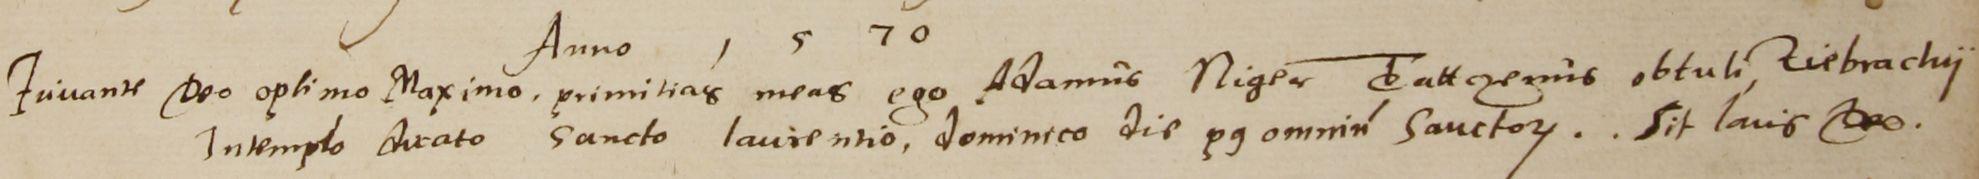 Anno 1570
Iuvante Deo optimo Maximo, primitias meas ego Adamus Niger obtuli Ziebrachij
In templo dicato Sancto laurentio, dominico die pq omniu Sanctorꝝ . . Sit laus Deo.